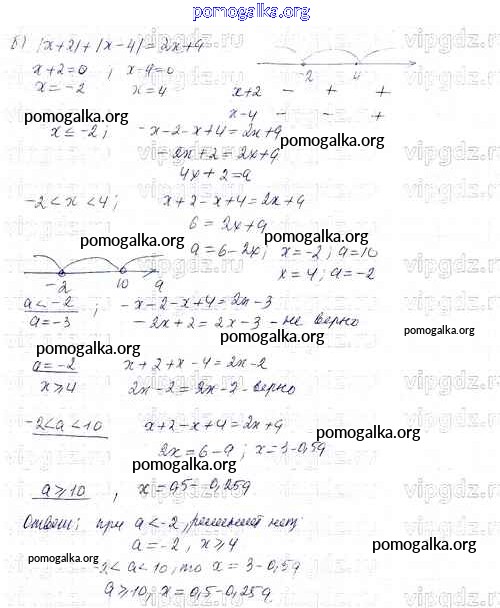 pomogalka.org
б) |x+2|+|x-4|=2x+a
x+2=0 ; x-4=0
x=-2 x=4
-2 4
x+2 - + +
x-4 - - +
pomogalka.org
x≤-2; -x-2-x+4=2x+a
pomogalka.org
-2x+2=2x+a
4x+2=a
-2<x<4; x+2-x+4=2x+a
pomogalka.org
6=2x+a
pomogalka.org
a=6-2x; x=-2; a=10
x=4; a=-2
-2 10 a
a<-2 ; -x-2-x+4=2x-3
a=-3 -2x+2=2x-3 - не верно
pomogalka.org
pomogalka.org
a=-2 x+2+x-4=2x-2
x≥4 2x-2=2x-2 - верно
-2<a<10 x+2-x+4=2x+a
pomogalka.org
2x=6-a; x=3-0,5a
pomogalka.org
a≥10, x=0,5-0,25a
Ответ: при a<-2, решений нет
a=-2, x≥4
pomogalka.org
pomogalka.org
-2<a<10, то x=3-0,5a
a≥10, x=0,5-0,25a
pomogalka.org